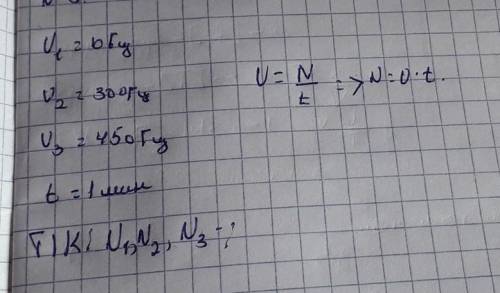 υ₁ = 6 Гц
υ₂ = 300 Гц
υ₃ = 450 Гц
t = 1 мин
Т/К/ N₁, N₂, N₃ - ?
υ = N/t => N = υ · t.